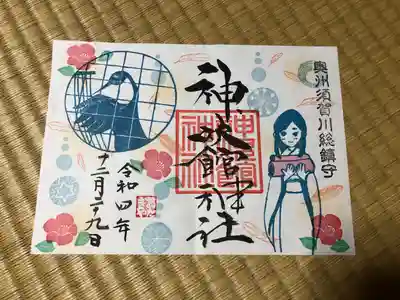 奥州須賀川総鎮守
神炊館神社
令和四年
十二月二十九日